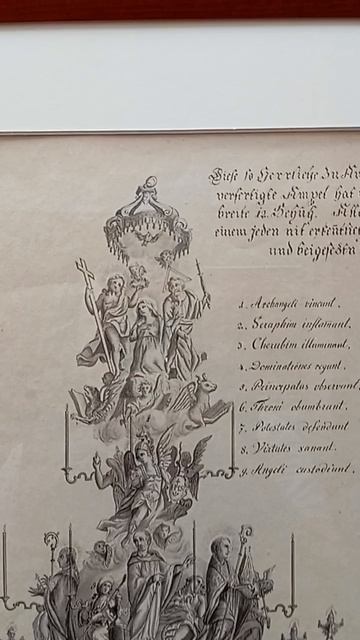 Diese so Herrliche In
verfertigte Ampel hat
breite 12. Schuh.
einem jeden
und beigesezten
1. Archangeli vincunt.
2. Seraphim inflamant.
3. Cherubim illuminant.
4. Dominationes regunt.
5. Principatus observant
6. Throni obumbrant.
7. Potestates defendunt
8. Virtutes sanant.
9. Angeli custodiunt.